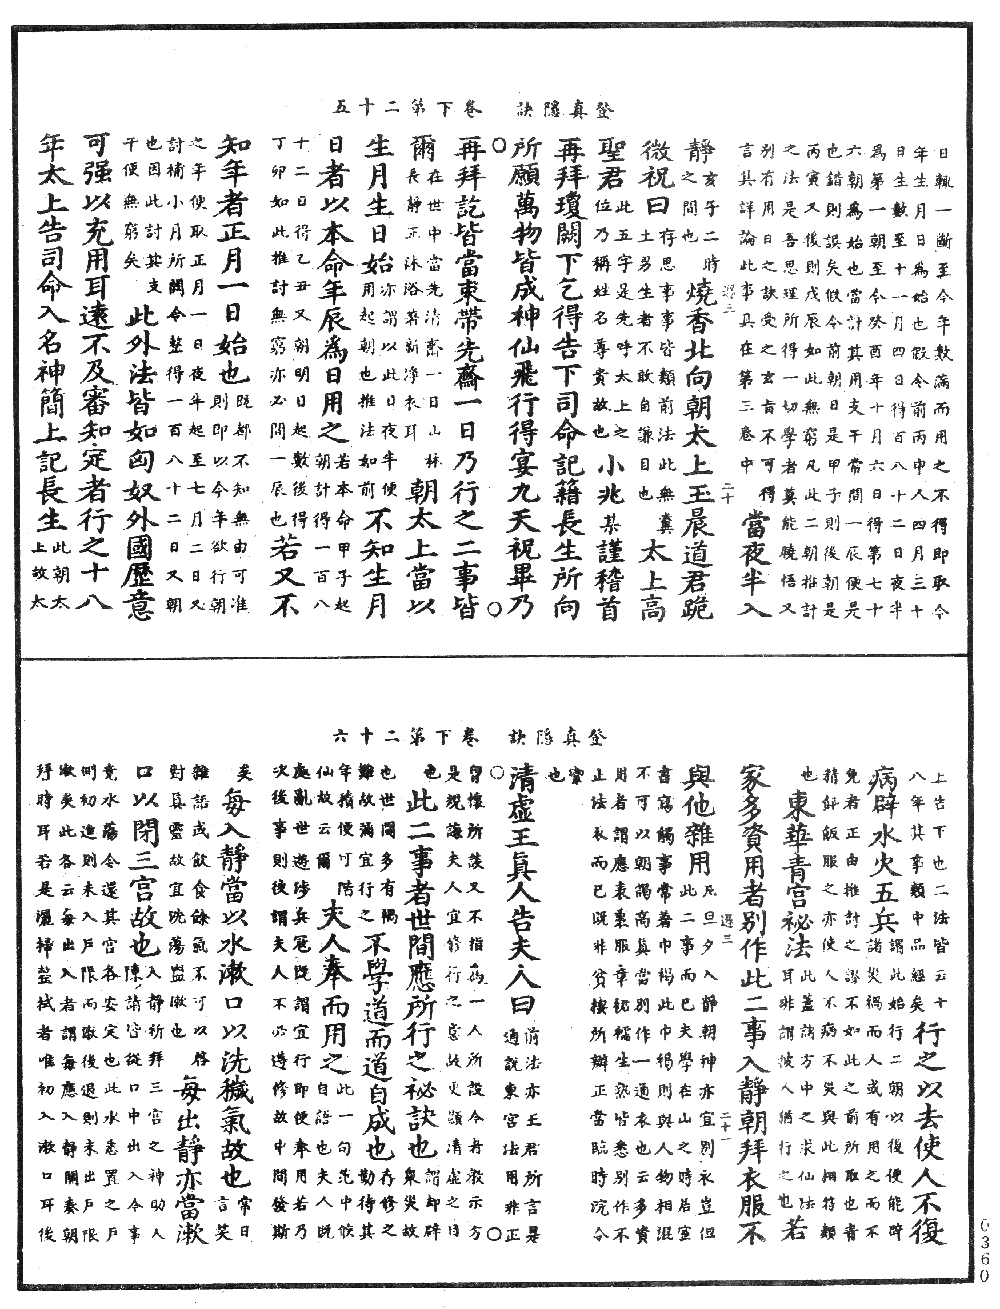 登真隱訣　卷下第二十五
日輒一斷至今年數滿而用之不得即取今
年生月日為始也假令前丙申人四月三十
日生數至十一月四日得百八十二日夜半
為第一朝至今癸酉年十月六日得第七十
六朝為始也當計其用支干常間一辰便是
也錯則誤矣假令前朝日是甲子則後朝是
丙寅又後則戊辰如此無窮凡此二朝推計
之法是吾思理所得一切學者莫能曉悟又
別有用日之訣受之玄旨不可得
言其詳論此事具在第三卷中　當夜半入
遜三　二十
靜亥子二時之間也　燒香北向朝太上玉晨道君跪
微祝曰存思事事皆類前法此無糞土男生者不敢自謙目也　太上高
聖君此五字是先呼太上之位乃稱姓名尊貴故也　小兆某謹稽首
再拜瓊闕下乞得告下司命記籍長生所向
所願萬物皆成神仙飛行得宴九天祝畢乃
再拜訖皆當束帶先齋一日乃行之二事皆
爾在世中當先清齋一日山林長靜正沐浴著新淨衣耳　朝太上當以
生月生日始亦謂以此日夜半便用起朝也推法如前　不知生月
日者以本命年辰為日用之若本命甲子起朝計得一百八
十二日得乙丑又朝明日起數後得
丁卯如此推討無窮亦必間一辰也　若又不
知年者正月一日始也既都不知無由可准則即以今年欲行朝
之年便取正月一日夜半起至七月二日又
討補小月所闕令整得一百八十二日又朝
也因此討其支干便無窮矣　此外法皆如匈奴外國曆意
可强以充用耳遠不及審知定者行之十八
年太上告司命入名神簡上記長生此朝太上故太
登真隱訣　卷下第二十六
上告下也二法皆云十八年其事類中品經矣　行之以去使人不復
病辟水火五兵謂此始行二朝以後便能辟諸災禍而人或有用之而不
免者正由推討之謬不如此之前所取也青
精䭀飯服之亦使人不病不災與此相符類
也　東華青宮祕法此蓋諸方中之求仙法耳非謂披人猶行之也　若
家多資用者別作此二事入靜朝拜衣服不
遜三　二十一
與他雜用凡旦夕入靜朝神亦宜別衣豈但此二事而已夫學在山之時居室
書寫觸事常著巾褐此巾褐則與人物相混
不可以朝謁高真當別作一通衣也云多資
用者謂應表裏服章襦生熟皆悉別作不
正法衣而已既非貧摟所辦正當臨時浣令
潔也
清虛王真人告夫人曰前法亦王君所言是通說東宮法用非正
曾懷所羨又不指為一人所設令者教示方
是規謨夫人宜修行之意故更顯清虛之目
也　此二事者世間應所行之祕訣也謂却辟衆災故
也世間多有禍難故彌宜行之　不學道而道自成也存修之勤待其
年積便可階仙故云爾　夫人奉而用之此一句范中候自語也夫人既
處亂世遊涉兵寇既謂宜行即便奉用若乃
次後事則彼謂夫人不必遵修故中間發斯
矣　每入靜當以水漱口以洗穢氣故也常日言笑
雜語或飲食餘氣不可以啓對真靈故宜浣蕩盥漱也　每出靜亦當漱
口以閉三宮故也入靜祈拜三宮之神助人陳請皆從口中出入今事
竟水蕩令還其宮各安定也此水悉置之戶
側初進則未入戶限而漱後退則未出戶限
漱矣此各云每出入者謂每應入靜關奏朝
拜時耳若是灑掃盥拭者唯初入漱口耳後
0360